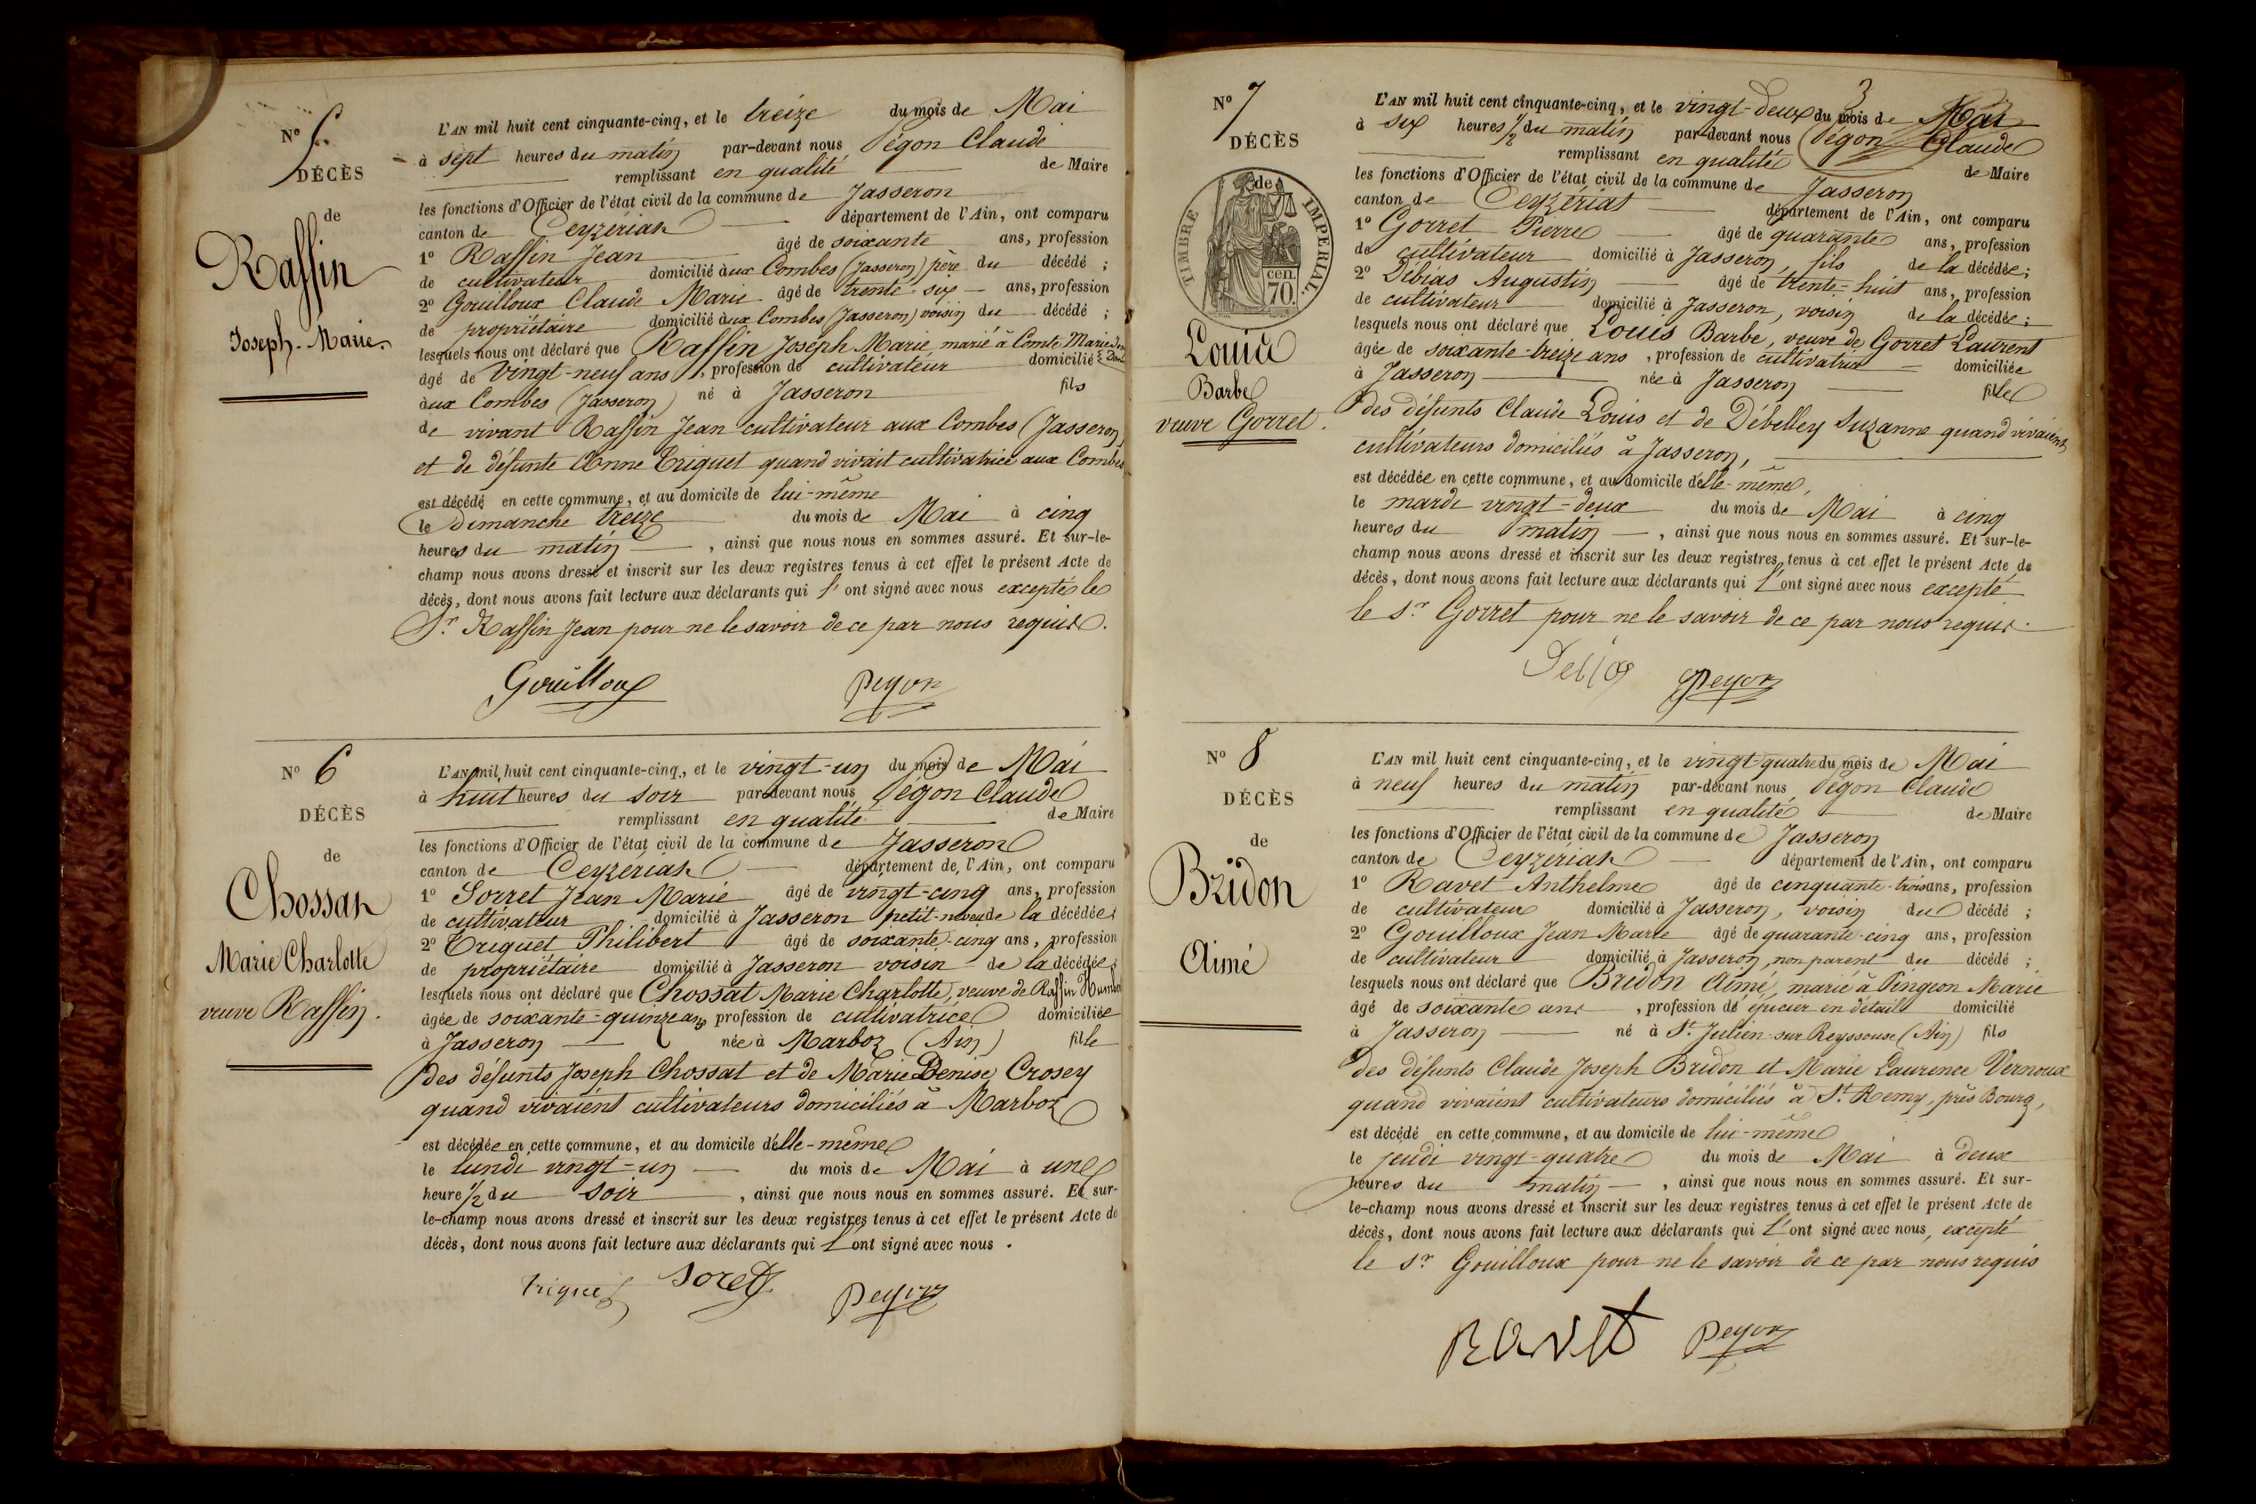 N° 5.
DÉCÈS
de
Raffin
Joseph-Marie.
L'AN mil huit cent cinquante-cinq, et le treize du mois de Mai
à sept heures du matin par-devant nous Pégon Claude
remplissant en qualité de Maire
les fonctions d'Officier de l'état civil de la commune de Jasseron
canton de Ceyzériat département de l'Ain, ont comparu
1° Raffin Jean âgé de soixante ans, profession
de cultivateur domicilié aux Combes (Jasseron) père du décédé ;
2° Gouilloux Claude Marie âgé de trente-six ans, profession
de propriétaire domicilié aux Combes (Jasseron) voisin du décédé ;
lesquels nous ont déclaré que Raffin Joseph Marie, marié à Comte Marie
âgé de vingt-neuf ans, profession de cultivateur domicilié
aux Combes (Jasseron) né à Jasseron fils
de vivant Raffin Jean cultivateur aux Combes (Jasseron)
et de défunte Anne Triquet quand vivait cultivatrice aux Combes
est décédé en cette commune, et au domicile de lui-même
le Dimanche treize du mois de Mai à cinq
heures du matin, ainsi que nous nous en sommes assuré. Et sur-le-
champ nous avons dressé et inscrit sur les deux registres tenus à cet effet le présent Acte de
décès, dont nous avons fait lecture aux déclarants qui l'ont signé avec nous excepté le
Sr. Raffin Jean pour ne le savoir de ce par nous requis.
Gouilloux Pegon
N° 6
DÉCÈS
de
Chossat
Marie Charlotte
veuve Raffin.
L'AN mil huit cent cinquante-cinq, et le vingt-un du mois de Mai
à huit heures du soir par-devant nous Pégon Claude
remplissant en qualité de Maire
les fonctions d'Officier de l'état civil de la commune de Jasseron
canton de Ceyzériat département de l'Ain, ont comparu
1° Sorret Jean Marie âgé de vingt-cinq ans, profession
de cultivateur domicilié à Jasseron petit-neveu de la décédée ;
2° Triquet Philibert âgé de soixante-cinq ans, profession
de propriétaire domicilié à Jasseron voisin de la décédée ;
lesquels nous ont déclaré que Chossat Marie Charlotte, veuve de Raffin
âgée de soixante-quinze ans profession de cultivatrice domiciliée
à Jasseron née à Marboz (Ain) fille
des défunts Joseph Chossat et de Marie Denise Crosey
quand vivaient cultivateurs domiciliés à Marboz
est décédée en cette commune, et au domicile d'elle-même
le lundi vingt-un du mois de Mai à une
heure 1/2 du soir, ainsi que nous nous en sommes assuré. Et sur-
le-champ nous avons dressé et inscrit sur les deux registres tenus à cet effet le présent Acte de
décès, dont nous avons fait lecture aux déclarants qui l'ont signé avec nous.
triquet Soret Pegon
3
N° 7
DÉCÈS
de
TIMBRE IMPERIAL.
cen.
70.
Louis
Barbe
veuve Gorret.
L'AN mil huit cent cinquante-cinq, et le vingt-deux du mois de Mai
à six heures 1/2 du matin par-devant nous Pégon Claude
remplissant en qualité de Maire
les fonctions d'Officier de l'état civil de la commune de Jasseron
canton de Ceyzériat département de l'Ain, ont comparu
1° Gorret Pierre âgé de quarante ans, profession
de cultivateur domicilié à Jasseron, fils de la décédée ;
2° Débias Augustin âgé de trente-huit ans, profession
de cultivateur domicilié à Jasseron, voisin de la décédée ;
lesquels nous ont déclaré que Louis Barbe, veuve de Gorret Laurent
âgée de soixante-treize ans, profession de cultivatrice domiciliée
à Jasseron née à Jasseron fille
des défunts Claude Louis et de Débelley Suzanne quand vivaient
cultivateurs domiciliés à Jasseron,
est décédée en cette commune, et au domicile d'elle-même,
le mardi vingt-deux du mois de Mai à cinq
heures du matin, ainsi que nous nous en sommes assuré. Et sur-le-
champ nous avons dressé et inscrit sur les deux registres tenus à cet effet le présent Acte de
décès, dont nous avons fait lecture aux déclarants qui l'ont signé avec nous excepté
le Sr. Gorret pour ne le savoir de ce par nous requis.
Pegon
N° 8
DÉCÈS
de
Bridon
Aimé
L'AN mil huit cent cinquante-cinq, et le vingt-quatre du mois de Mai
à neuf heures du matin par-devant nous Pégon Claude
remplissant en qualité de Maire
les fonctions d'Officier de l'état civil de la commune de Jasseron
canton de Ceyzériat département de l'Ain, ont comparu
1° Ravet Anthelme âgé de cinquante-trois ans, profession
de cultivateur domicilié à Jasseron, voisin du décédé ;
2° Gouilloux Jean Marie âgé de quarante-cinq ans, profession
de cultivateur domicilié à Jasseron, non parent du décédé ;
lesquels nous ont déclaré que Bridon Aimé, marié à Pingeon Marie
âgé de soixante ans, profession d'épicier en détail domicilié
à Jasseron né à St. Julien-sur-Reyssouze (Ain) fils
des défunts Claude Joseph Bridon et Marie Laurence Vernoux
quand vivaient cultivateurs domiciliés à St. Remy, près Bourg,
est décédé en cette commune, et au domicile de lui-même
le jeudi vingt-quatre du mois de Mai à deux
heures du matin, ainsi que nous nous en sommes assuré. Et sur-
le-champ nous avons dressé et inscrit sur les deux registres tenus à cet effet le présent Acte de
décès, dont nous avons fait lecture aux déclarants qui l'ont signé avec nous, excepté
le Sr. Gouilloux pour ne le savoir de ce par nous requis
Ravet Pegon